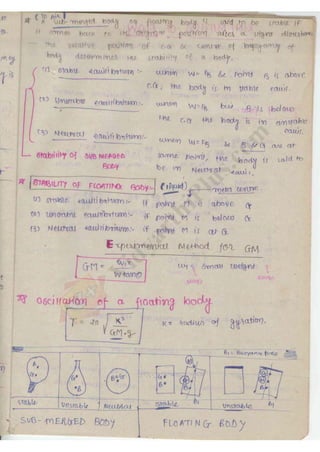 Sub-merged body or floating body is said to be stable if
it comes back to its original position after a slight disturbance
the relative position of C.G & center of buoyancy of
body determines the stability of a body.
(1) Stable equilibrium:- when W=FB & point B is above
C.G, the body is in stable equi.
(2) Unstable equilibrium:- when W=FB but B is below
the CG the body is in unstable
equi.
(3) Neutral equilibrium:- when W=FB & B & G are at
same point, the body is said to
be in Neutral equi.
Stability of SUB MERGED
BODY
STABILITY OF FLOATING BODY:- (liquid)
meta centre
(1) Stable equilibrium:- if point M is above G
(2) Unstable equilibrium:- if point M is below G
(3) Neutral equilibrium:- if point M is at G
Experimental Method for GM
GM = w1x / W tanθ
w1 = small weight
Oscillation of a floating body
T = 2π √ K² / GM.g
K = radius of gyration.
B1 = Buoyancy force
B•
G•
G•
•B
B•G
G•
B•
B1
G
B
B1
Stable
Unstable
Neutral
Stable
Unstable
SUB-MERGED BODY
FLOATING BODY